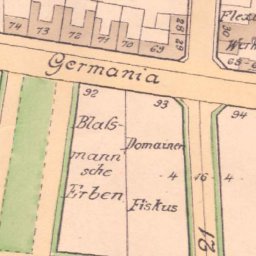 74 73 72 71 70 69
28
29
30
Werk
68-6
Germania
92 93 94
Blaß-
mann'
sche
Erben
Domainen
Fiskus
4 16 4
21